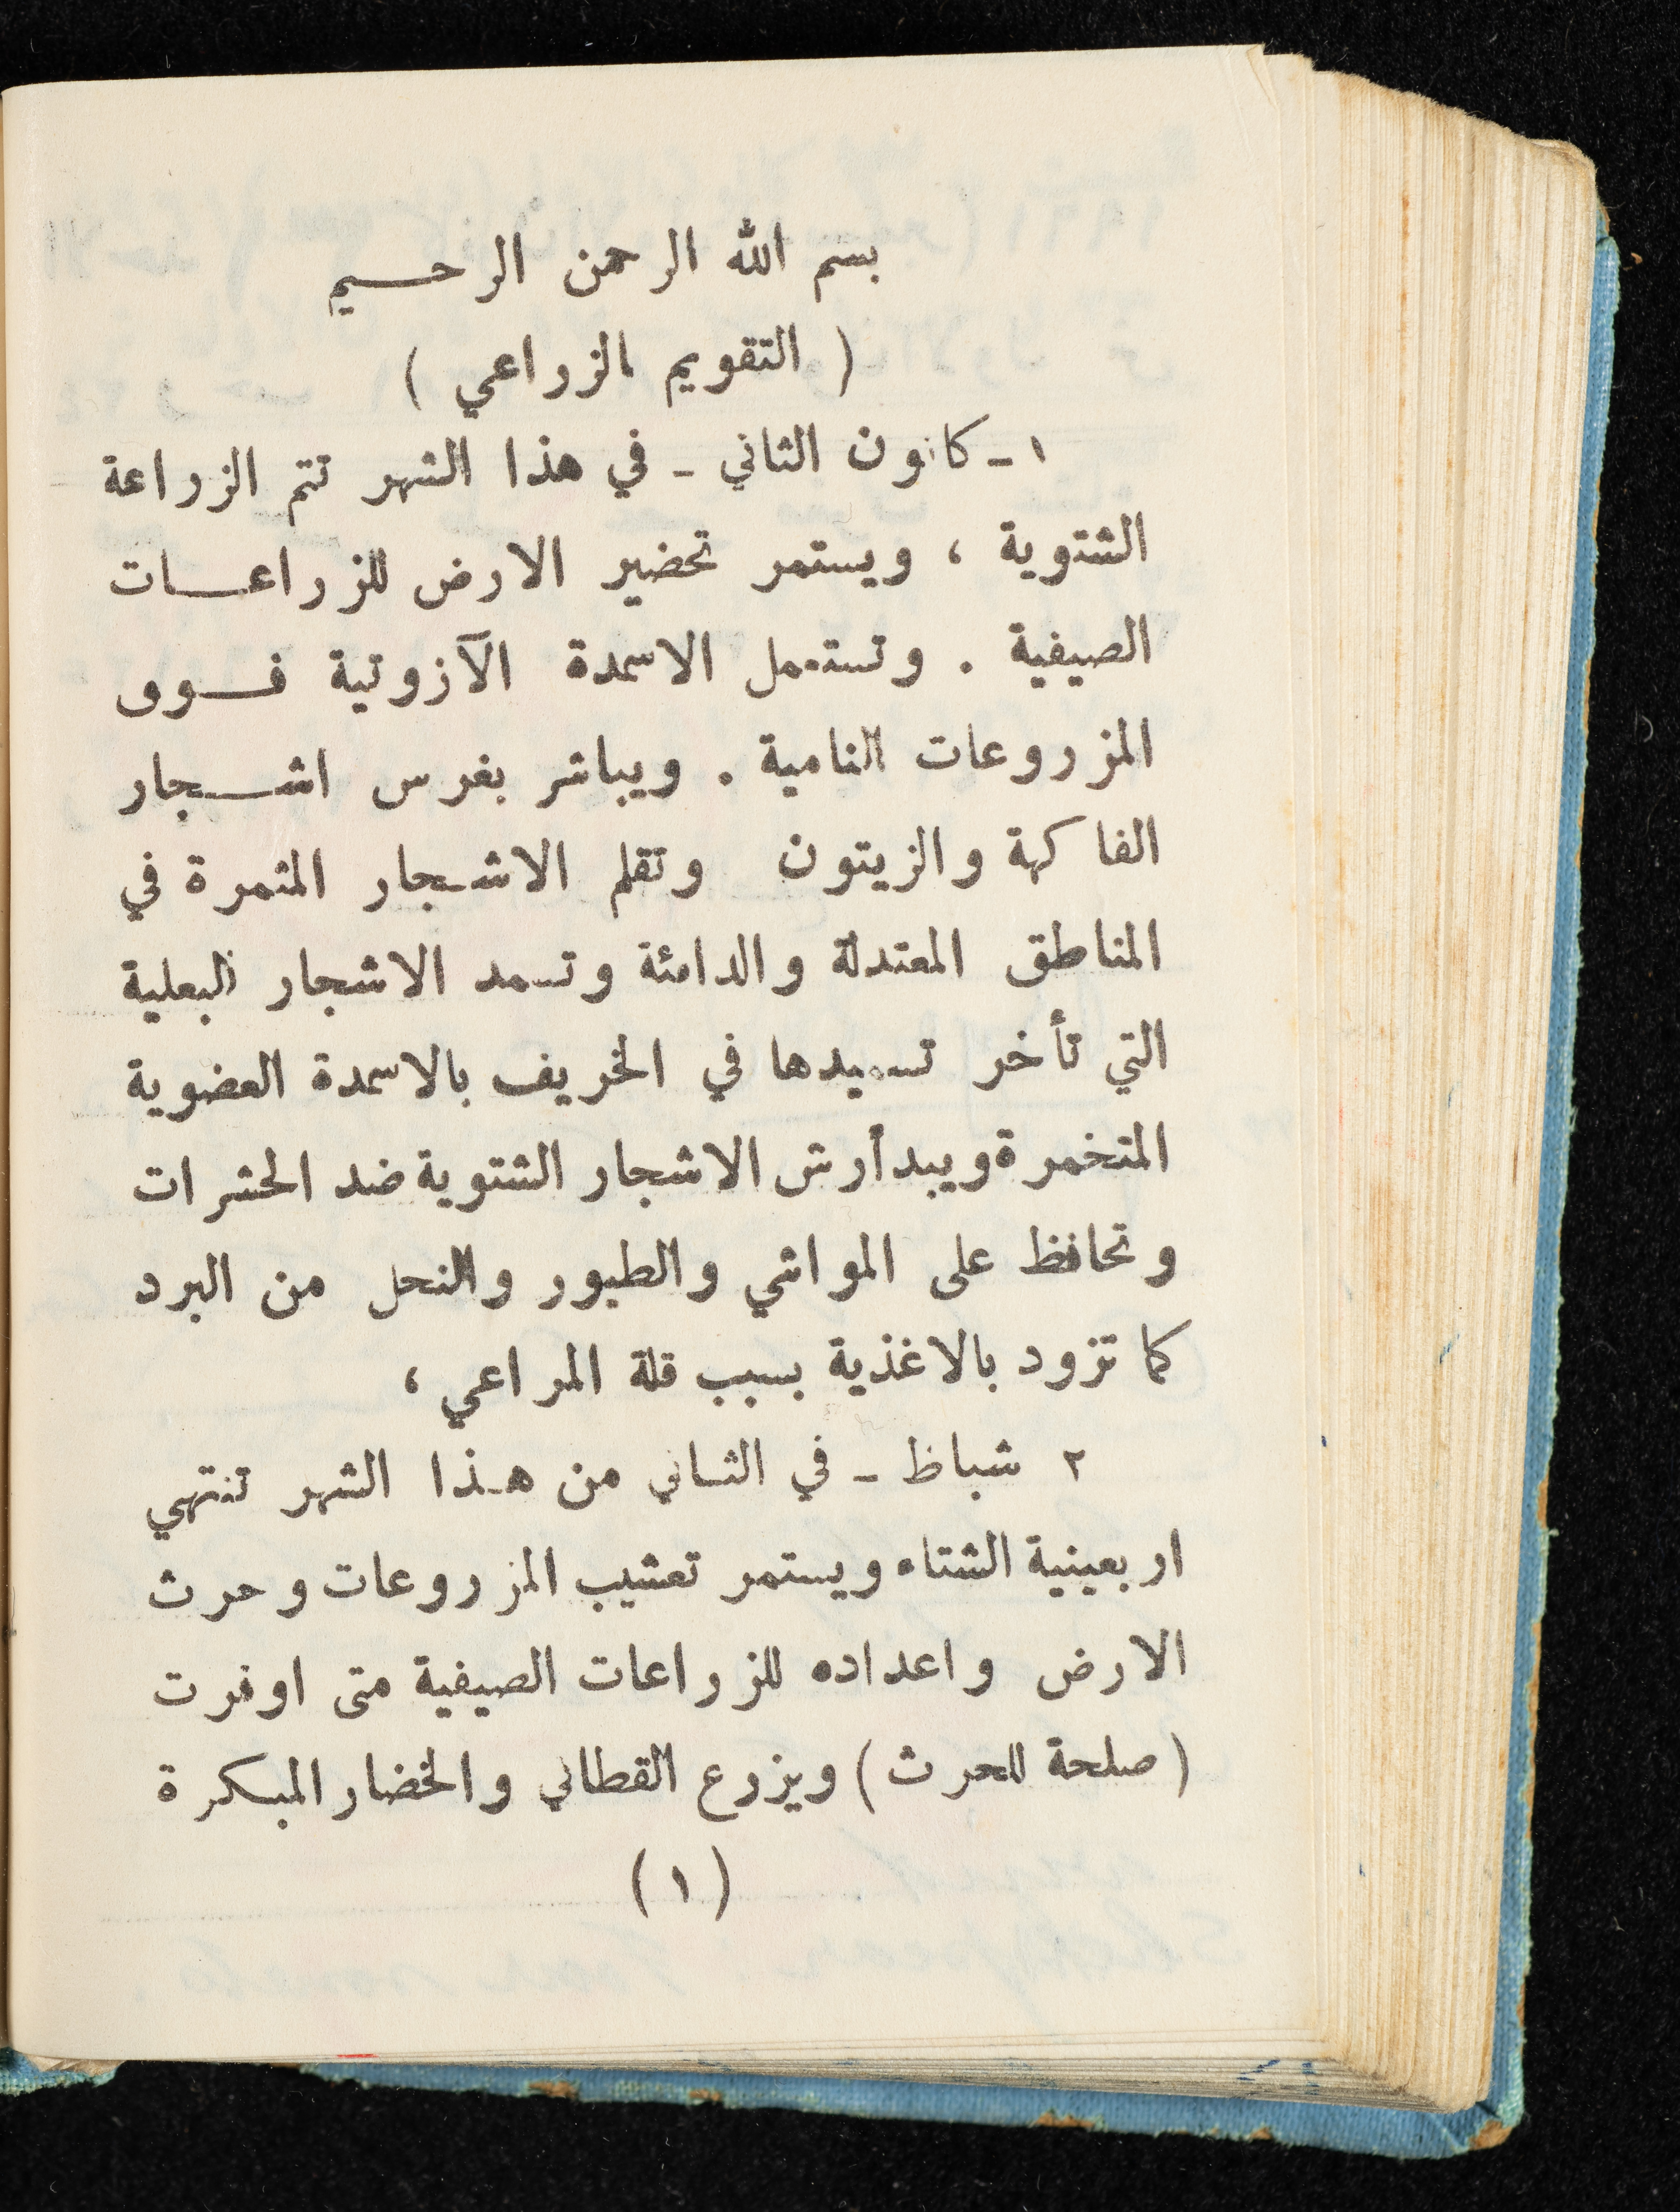 بسم الله الرحمن الرحيم
( التقويم الزراعي )
١ - كانون الثاني - في هذا الشهر تتم الزراعة
الشتوية ، ويستمر تحضير الارض للزراعات
الصيفية . وتستعمل الاسمدة الآزوتية فوق
المزروعات النامية . ويباشر بغرس اشجار
الفاكهة والزيتون وتقلم الاشجار المثمرة في
المناطق المعتدلة والدافئة وتسمد الاشجار البعلية
التي تأخر تسميدها في الخريف بالاسمدة العضوية
المتخمرة ويبدأ رش الاشجار الشتوية ضد الحشرات
وتحافظ على المواشي والطيور والنحل من البرد
كما تزود بالاغذية بسبب قلة المراعي ،
٢ شباظ - في الثاني من هذا الشهر تنتهي
اربعينية الشتاء ويستمر تعشيب المزروعات وحرث
الارض واعداده للزراعات الصيفية متى اوفرت
( صلحة للحرث ) ويزرع القطاني والخضار المبكرة
( ١ )